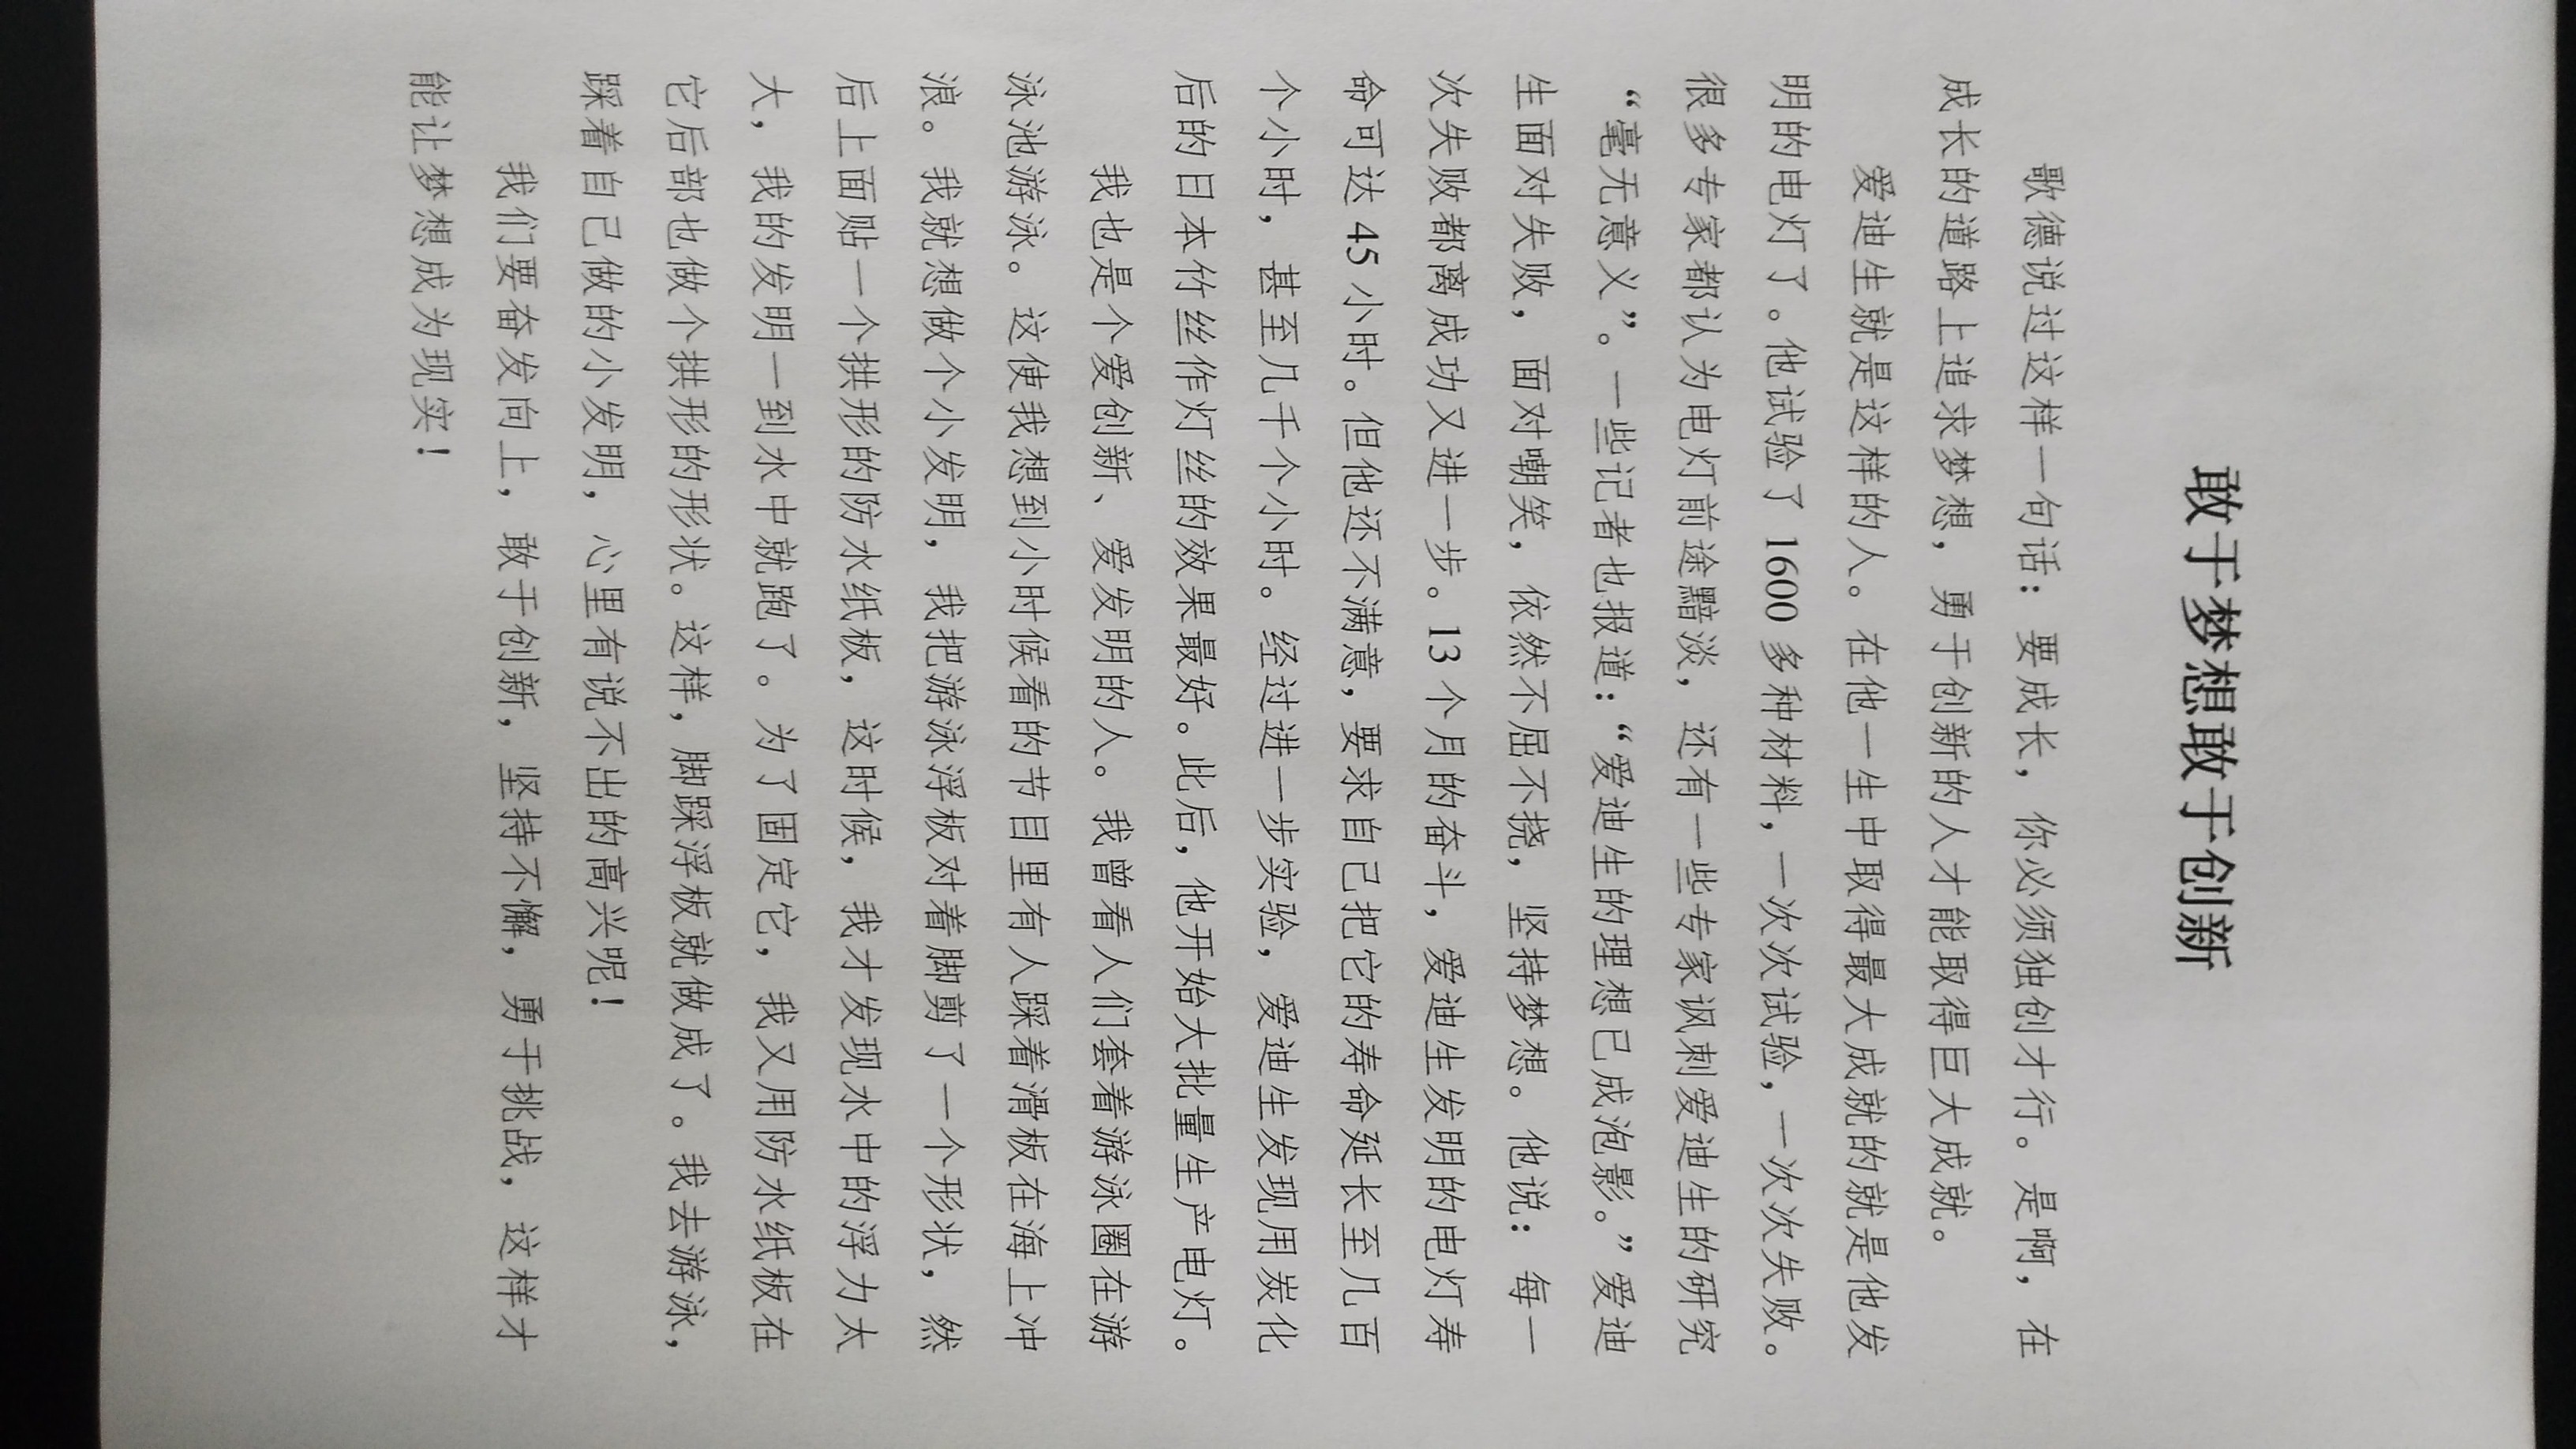 敢于梦想敢于创新
歌德说过这样一句话：要成长，你必须独创才行。是啊，在
成长的道路上追求梦想，勇于创新的人才能取得巨大成就。
爱迪生就是这样的人。在他一生中取得最大成就的就是他发
明的电灯了。他试验了 1600 多种材料，一次次试验，一次次失败。
很多专家都认为电灯前途黯淡，还有一些专家讽刺爱迪生的研究
“毫无意义”。一些记者也报道：“爱迪生的理想已成泡影。”爱迪
生面对失败，面对嘲笑，依然不屈不挠，坚持梦想。他说：每一
次失败都离成功又进一步。13 个月的奋斗，爱迪生发明的电灯寿
命可达 45 小时。但他还不满意，要求自己把它的寿命延长至几百
个小时，甚至几千个小时。经过进一步实验，爱迪生发现用炭化
后的日本竹丝作灯丝的效果最好。此后，他开始大批量生产电灯。
我也是个爱创新、爱发明的人。我曾看人们套着游泳圈在游
泳池游泳。这使我想到小时候看的节目里有人踩着滑板在海上冲
浪。我就想做个小发明，我把游泳浮板对着脚剪了一个形状，然
后上面贴一个拱形的防水纸板，这时候，我才发现水中的浮力太
大，我的发明一到水中就跑了。为了固定它，我又用防水纸板在
它后部也做个拱形的形状。这样，脚踩浮板就做成了。我去游泳，
踩着自己做的小发明，心里有说不出的高兴呢！
我们要奋发向上，敢于创新，坚持不懈，勇于挑战，这样才
能让梦想成为现实！